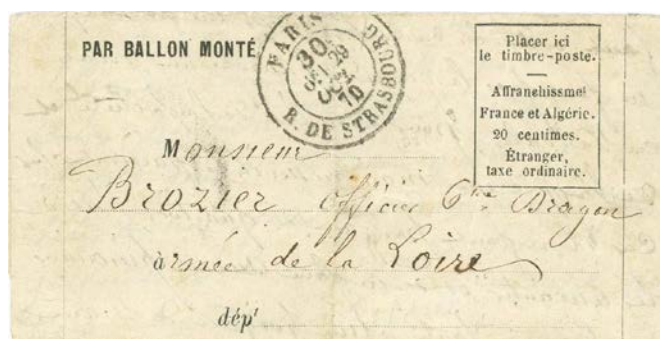 PAR BALLON MONTÉ
PARIS
30
OCT
70
R. DE STRASBOURG
Placer ici
le timbre-poste.
Affranchissmet
France et Algérie.
20 centimes.
Étranger,
taxe ordinaire.
Monsieur
Brozier officier 6me Dragon
armée de la Loire
dépt